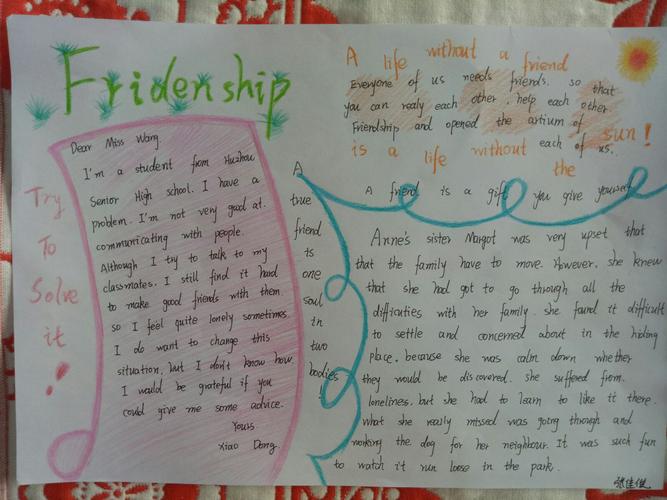 Fridenship
Dear Miss Wang
I'm a student from Huzhou
Senior High school. I have a
problem. I'm not very good at.
communicating with people.
Although I try to talk to my
classmates, I still find it hard
to make good friends with them.
so I feel quite lonely sometimes.
I do want to change this
situation, but I don't know how
I would be grateful if you
could give me some advice.
Yours
Xiao Dong
Try
To
Solve
it!
A life without a friend
Everyone of us needs friends. so that
you can realy each other, help each other
Friendship and opened the artium of
each of us.
is a life without the sun!
A friend is a gift you give yourself
A
true
friend
is
one
soul
in
two
bodies
Anne's sister Margot was very upset that
that the family have to move. However, she knew
that she had got to go through all the
difficuties with her family. she found it difficult
to settle and concerned about in the hiding
place, because she was calm down whether
they would be discovered. she suffered from.
loneliness, but she had to learn to like it there.
what she really missed was going through and
walking the dog for her neighbour. It was such fun
to watch it run loose in the park.